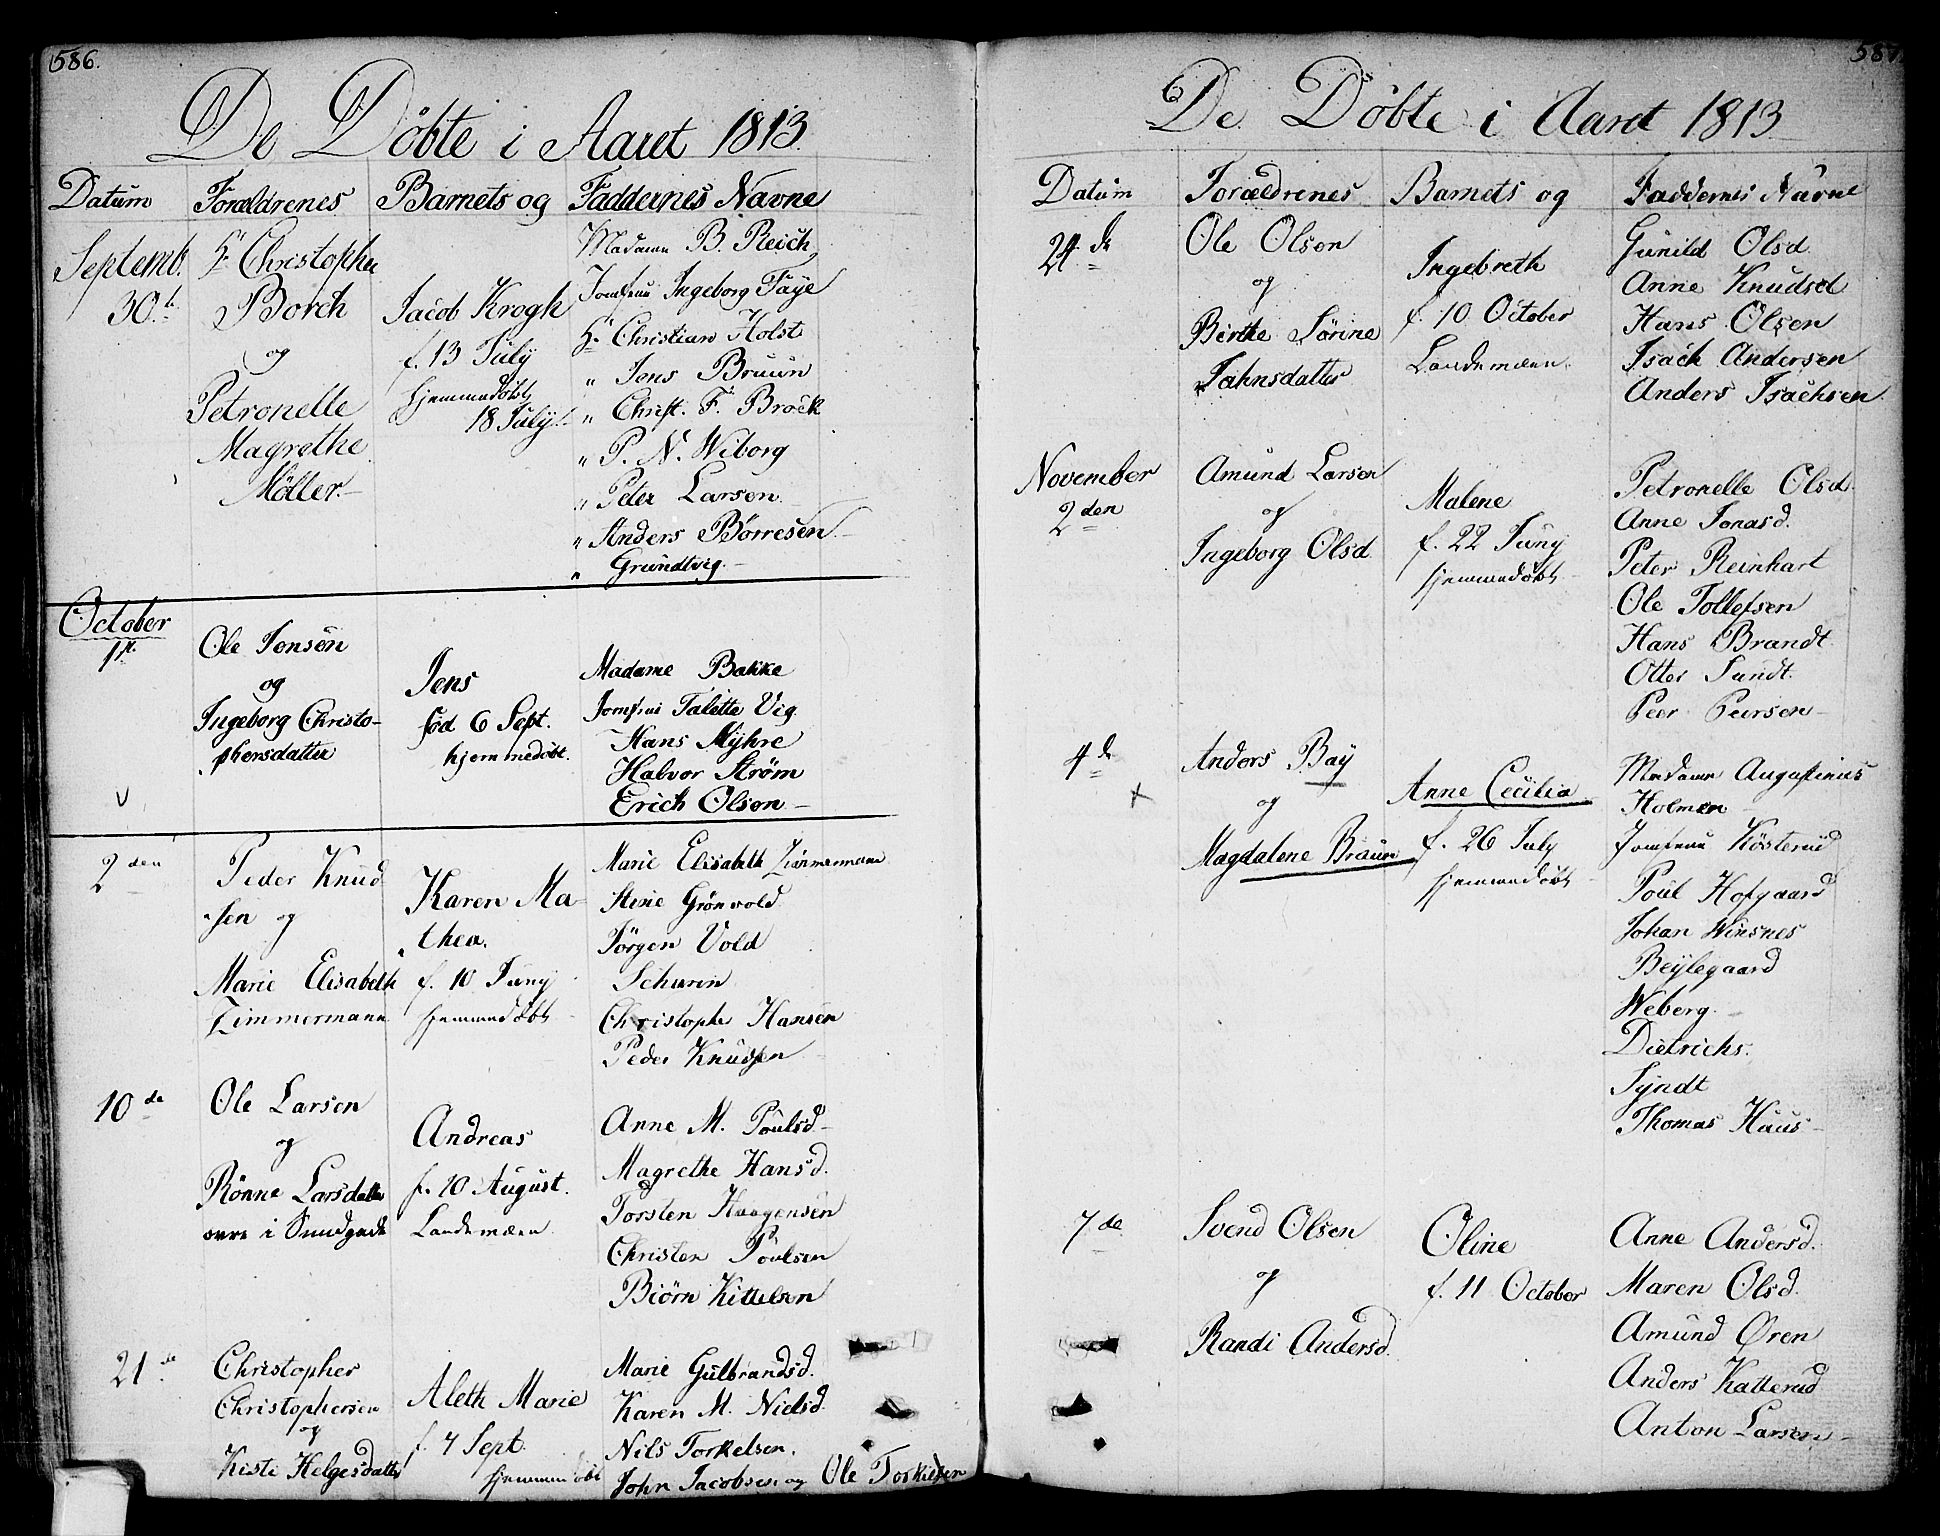 586.
De Döbte i Aaret 1813.
Datum Forældrenes Barnets og Faddernes Navne
Septemb.
30.
Hr Christopher
Borch
og
Petronelle
Magrethe
Möller.
Jacob Krogh
f. 13 July
hjemmedöbt
18 July
Madame B. Reich
Jomfrue Ingeborg Faye
Hr Christian Holst
" Jens Bruun
" Christ. F. Brock
" P. N. Wiborg
" Peter Larsen
" Anders Börresen
" Grundtvig.
October
1.
Ole Jensen
og
Ingeborg Christo-
phersdatter
Jens
föd 6 Sept.
hjemmedöbt.
Madame Bakke
Jomfrue Talette Vig
Hans Myhre
Halvor Ström
Erich Olsen
2den
Peder Knud
sen og
Marie Elisabeth
Zimmermann
Karen Ma-
thea.
f. 10 Juny
hjemmedöbt
Marie Elisabeth Zimmermann
Stine Grönvold
Jörgen Vold
Schurin
Christophe Hansen
Peder Knudsen
10de
Ole Larsen
og
Rönne Larsdatter
Andreas
f. 10 August.
Landemæen
Anne M. Poulsd
Magrethe Hansd.
Torsten Haagensen
Christen Poulsen
Biörn Kittelsen
21de
Christopher
Christophersen
og
Kisti Helgesdatter
Aleth Marie
f. 7 Sept.
hjemmedöbt
Marie Gulbrandsd.
Karen M. Nielsd.
Nils Torkelsen.
John Jacobsen og Ole Torkildsen
587
De Döbte i Aaret 1813
Datum Forældrenes Barnets og Faddernes Navne
24de
Ole Olsen
og
Birthe Sörine
Jahnsdatter
Ingebreth
f. 10 October
Landemæen.
Gunild Olsd
Anne Knudsd
Hans Olsen
Isach Andersen
Anders Isachsen
November
2den
Amund Larsen
og
Ingeborg Olsd
Malene
f. 22 Juny
hjemmedöbt
Petronelle Olsd.
Anne Jonasd.
Peter Reinhart
Ole Tollefsen
Hans Brandt
Otter Sundt.
Peer Peersen
4de
Anders Bay
og
Magdalene Braun
Anne Cecilia
f. 26 July
hjemmedöbt
Madame Augustinius
Holmen
Jomfrue Kösterud
Poul Hofgaard
Johan Winsnes
Beylegaard
Weberg.
Dietrichs.
Syndt
Thomas Haus
7de
Svend Olsen
og
Randi Andersd.
Oline
f. 11 October
Anne Andersd.
Maren Olsd.
Amund Øren
Anders Katterud
Anton Larsen